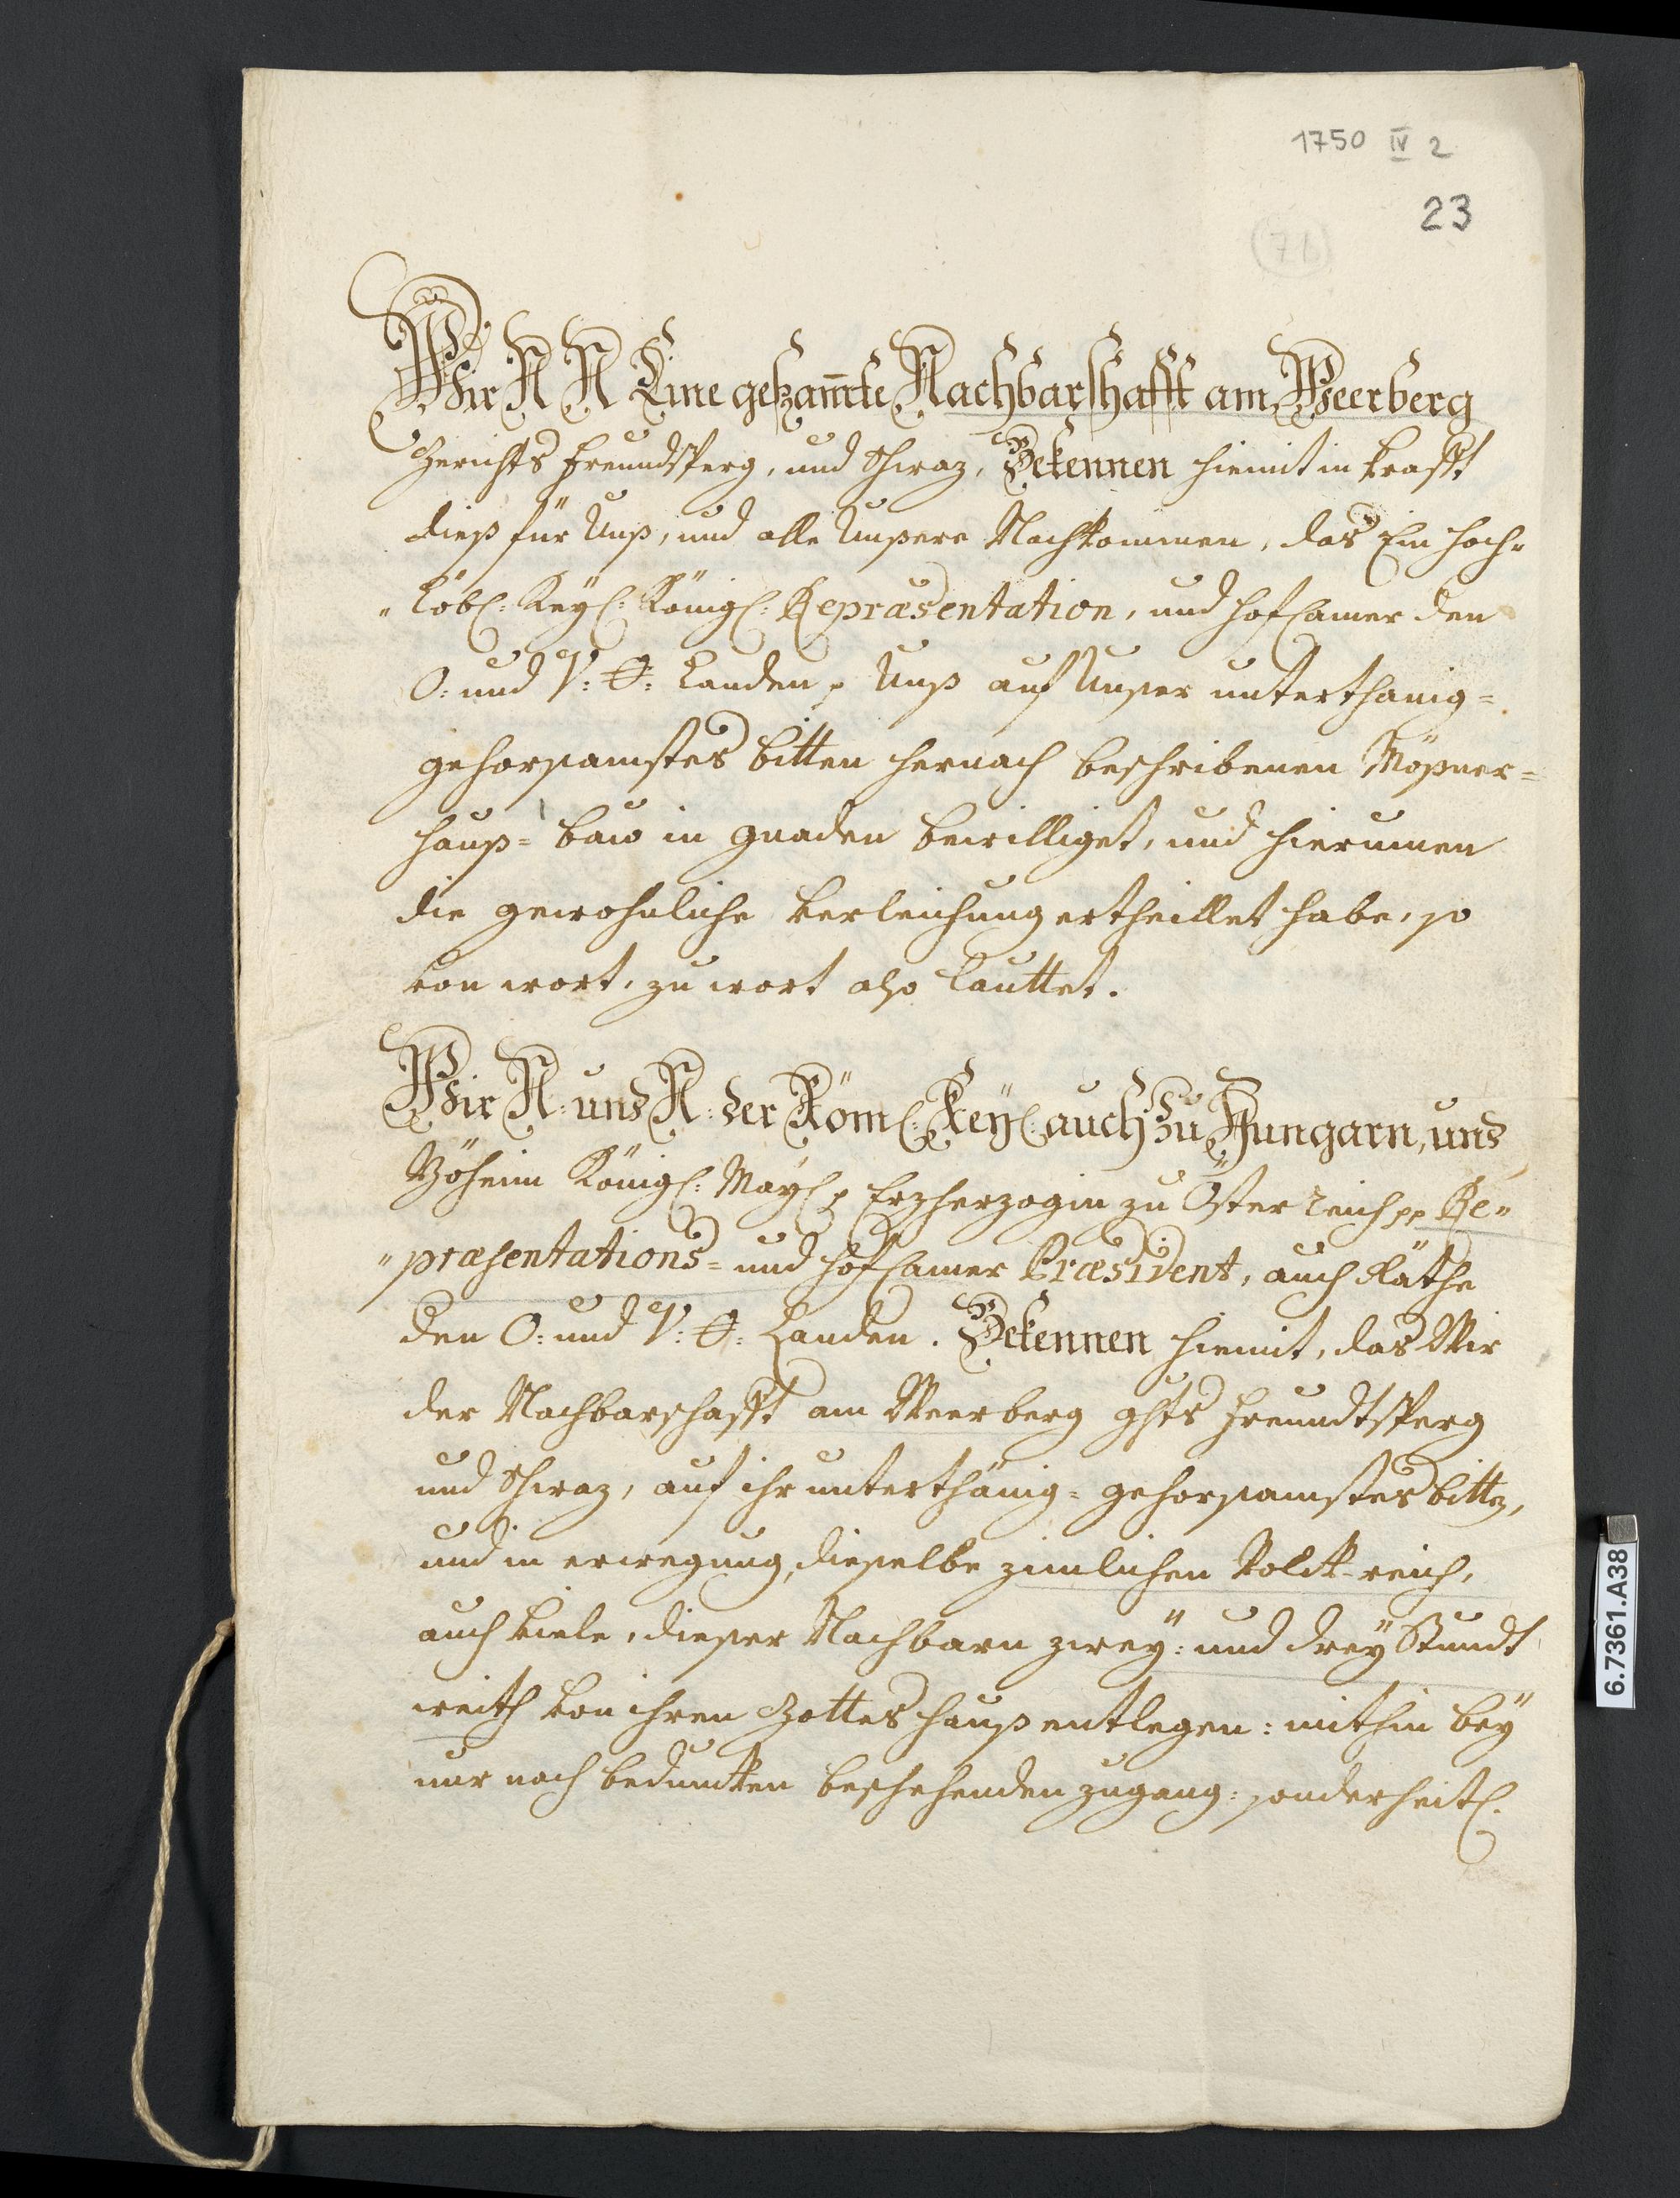 1750 IV 2
23
(71)
Wir N N Eine geßam̅te Nachbarschafft am Weerberg
Gerichts Freundsperg, und Schwaz, Bekennen hiemit in krafft
dieß für Unß, und alle Unßere Nachkommen, das Ein hoch„
„löbl: Keyl: Königl: Repræsentation, und hofCamer den
O: und V: Ö: Landen p Unß auf Unßer unterthanig=
gehorsamstes bitten hernach beschribenen Mößner=
hauß= bau in gnaden bewilliget, und hierumen
die gewohnliche Verleichung ertheillet habe, so
von wort, zu wort also lauttet.
Wir N: und N: der Röm: Keyl: auch zu Hungarn, und
Böheim Königl: Mayl p Erzherzogin zu Österreich pp Re„
„præsentations= und hofCamer Præsident, auch Räthe
den O: und V: Ö: Landen. Bekennen hiemit, das Wir
der Nachbarschafft am Weerberg ghts Freundtsperg
und Schwaz, auf ihr unterthänig= gehorsamstes bitten,
und in erwegung, dieselbe zimlichen Volck-reich,
auch viele, dieser Nachbarn zwey: und drey Stundt
weith von ihren Gottes hauß entlegen: mithin bey
nur nach bedunkhen beschehenden zugang: sonderheitl.
6.7361.A38